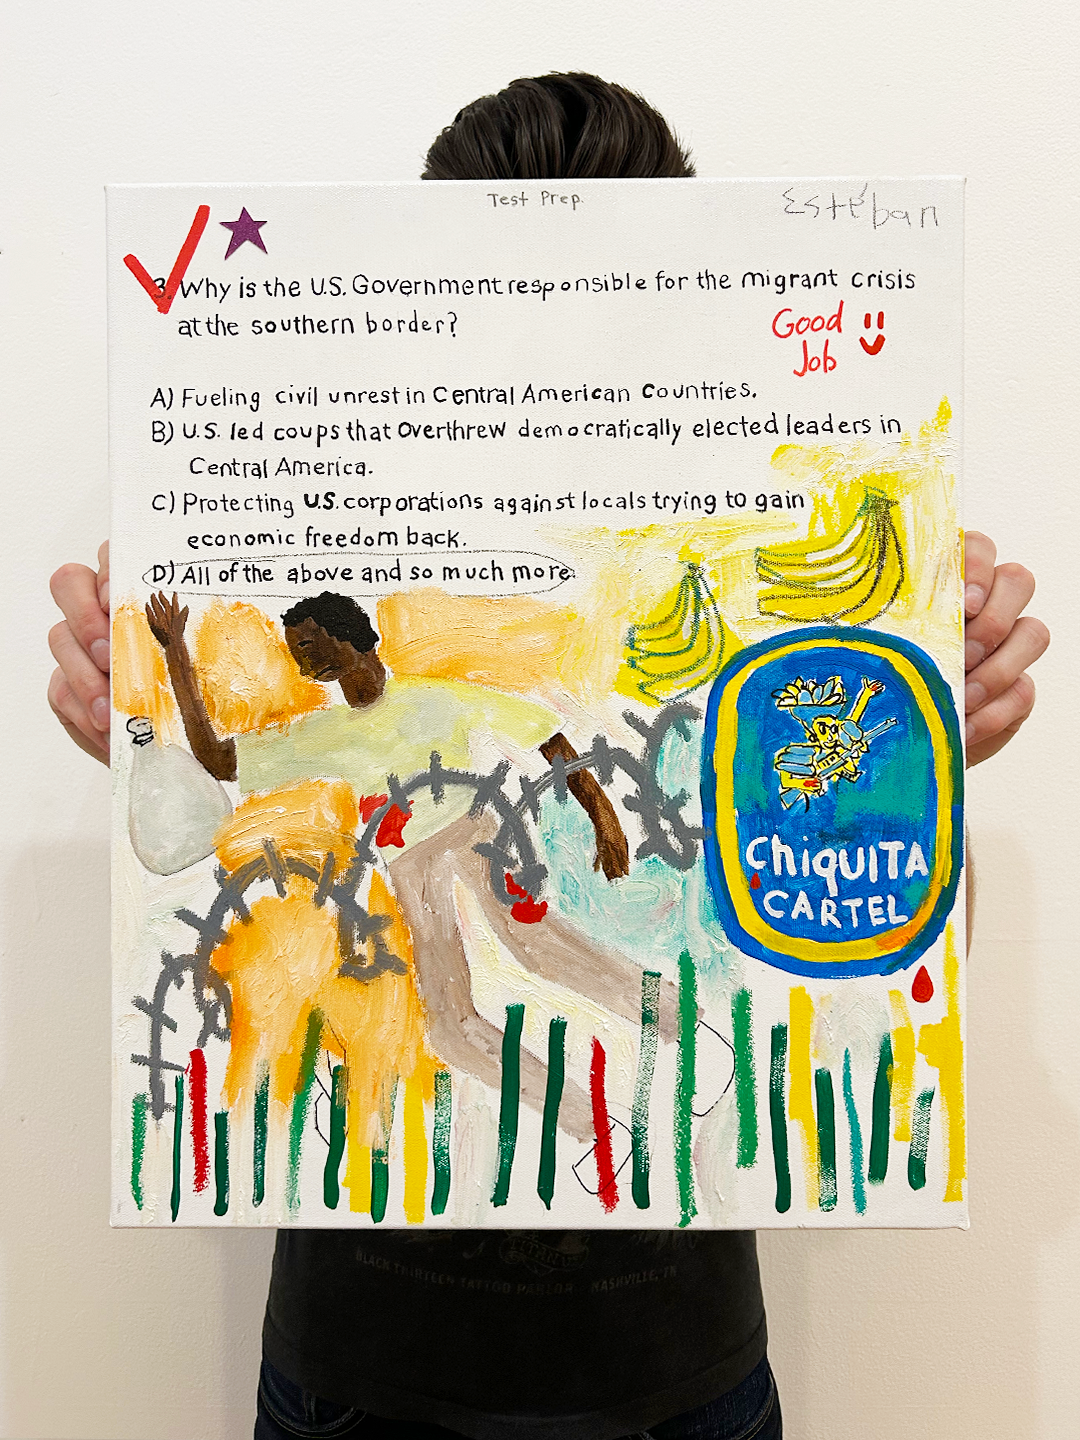 Test Prep.
Estéban
3. Why is the U.S. Government responsible for the migrant crisis
at the southern border?
Good
Job
A) Fueling civil unrest in Central American Countries.
B) U.S. led coups that overthrew democratically elected leaders in
Central America.
C) Protecting U.S. corporations against locals trying to gain
economic freedom back.
D) All of the above and so much more.
ChiQUITA
CARTEL
BLACK THIRTEEN TATTOO PARLOR NASHVILLE, TN